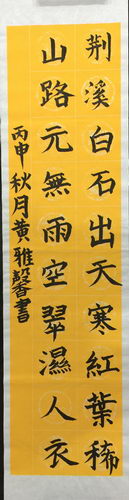 荆溪白石出天寒紅葉稀
山路元無雨空翠濕人衣
丙申秋月黄雅馨書